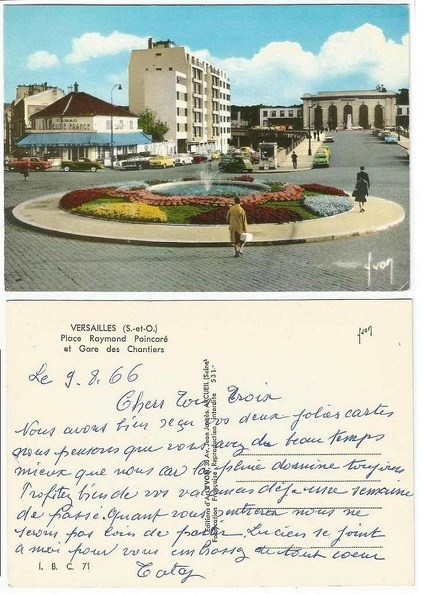 TABAC
DE FRANCE
yvon
VERSAILLES (S.-et-O.)
Place Raymond Poincaré
et Gare des Chantiers
yvon
Le 9.8.66
Chers Tous Trois
Nous avons bien reçu vos deux jolies cartes
nous pensons que vous avez du beau temps
mieux que nous car la pluie domine toujours
Profitez bien de vos vacances déjà une semaine
de passé. Quant vous rentrerez nous ne
serons pas loin de partir. Lucien se joint
a moi pour vous embrassez de tout coeur
I. B. C. 71
Editions d'Art YVON, Av. Jean Jaurès, ARCUEIL (Seine)
Fabrication Française - Reproduction interdite 531-